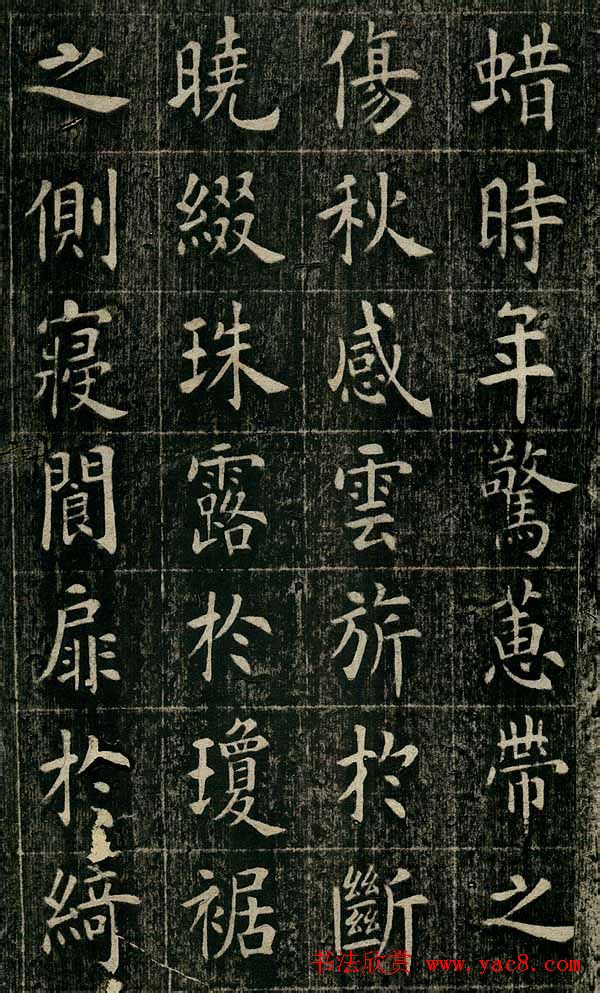 蜡時年驚蕙帶之
傷秋感雲旂於斷
曉綴珠露於瓊裾
之側寢閬扉於綺
书法欣赏 www.yac8.com